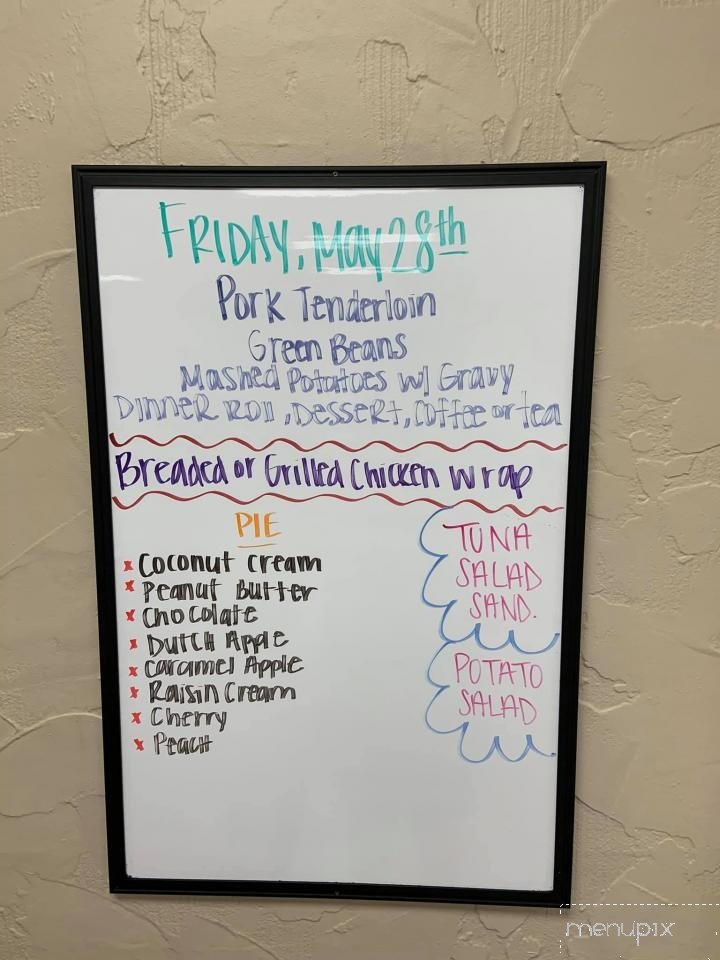 FRIDAY, MAY 28th
Pork Tenderloin
Green Beans
Mashed Potatoes w/ Gravy
DINNER ROll, DESSERT, Coffee or tea
Breaded or Grilled Chicken Wrap
PIE
x Coconut Cream
x Peanut Butter
x Chocolate
x Dutch Apple
x Caramel Apple
x Raisin Cream
x Cherry
x Peach
TUNA
SALAD
SAND.
POTATO
SALAD
menupix